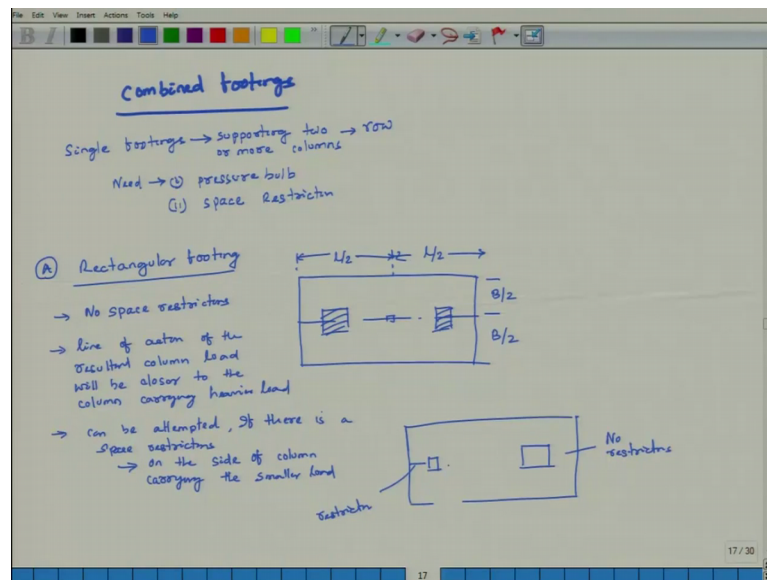 File Edit View Insert Actions Tools Help
B I
Combined footings
Single footings → supporting two → row
or more columns
Need → (i) pressure bulb
(ii) space Restriction
(A) Rectangular footing
→ No space restrictions
→ line of action of the
resultant column load
will be closer to the
column carrying heavier load
→ can be attempted, If there is a
space restrictions
→ on the side of column
carrying the smaller load
L/2 L/2
B/2
B/2
No
restrictns
restrictn
17 / 30
17